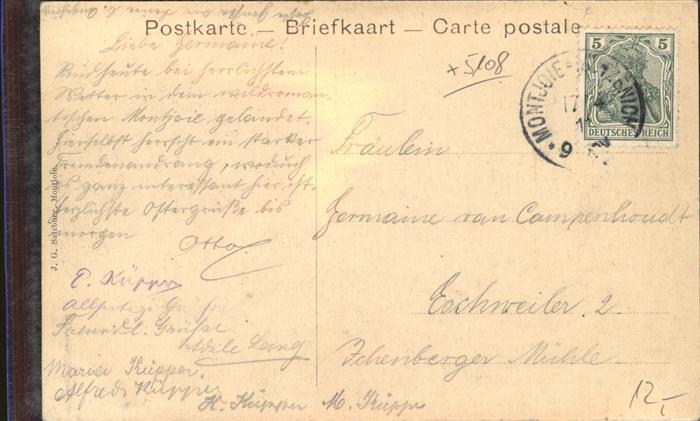 Postkarte – Briefkaart – Carte postale
Liebe Germaine!
Sind heute bei herrlichstem
Wetter in dem wildroman-
tischen Montjoie gelandet.
Hierselbst herrscht ein starker
Fremdenandrang, wodurch
es ganz interessant hier ist.
Herzlichste Ostergrüße bis
morgen
Otto
E. Küpper
Freundl. Grüße
Adele Lang
Maria Küpper.
Alfred Küpper
H. Küpper M. Küpper
J. G. Salzburg, Montjoie
+5/08
5 5
DEUTSCHES REICH
MONTJOIE
17
9
Fräulein
Germaine van Campenhoudt
Eschweiler 2.
Ichenberger Mühle.
12,-